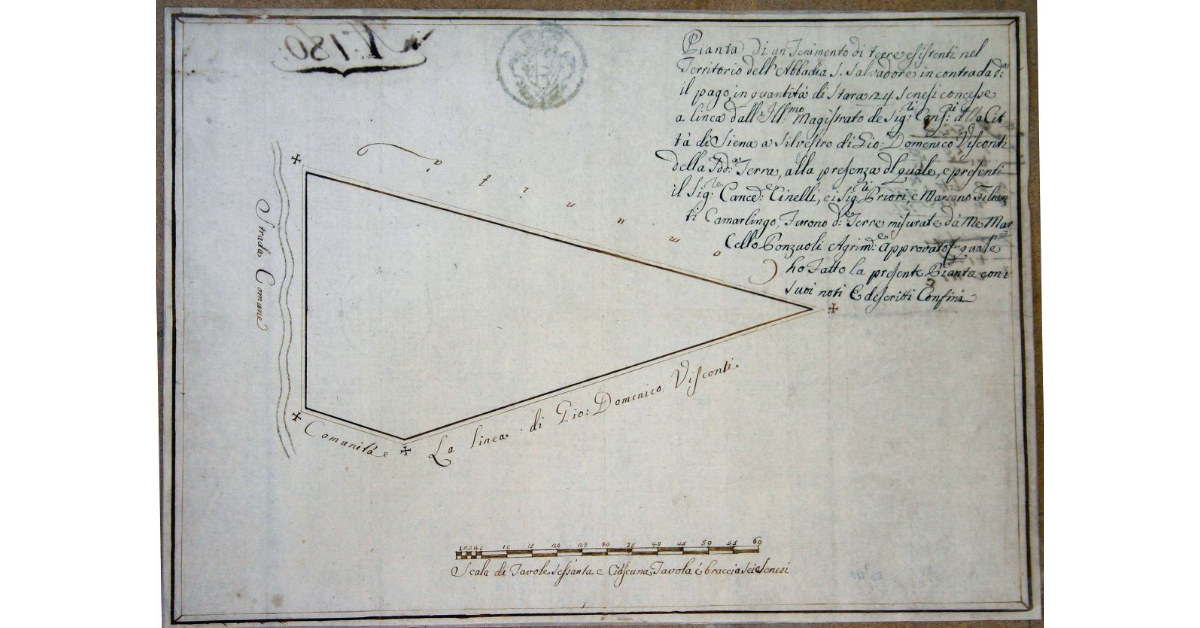 N: 180
Pianta di un Tenimento di terre esistenti nel
Territorio dell'Abbadia S. Salvadore in contrada d:
il pago in quantità di Stara 124 Senesi concesse
a linea dall'Ill:mo Magistrato de Sig:ri Cons:ri d:lla Cit
tà di Siena a Silvestro di Gio: Domenico Visconti
della Terra, alla presenza del quale, e presenti
il Sig:re Canced:e Cinelli, e i Sig:ri Priori, e
Camarlingo, Furono d:e Terre misurate da Me Mar
cello Ponzuoli Agrim:e Approvato quale
ho Fatto la presente Pianta con i
Suoi noti E descritti Confini
Strada Comane
Comanità e
La linea di Gio: Domenico Visconti
1 2 3 4 5 10 15 20 25 30 35 40 45 50 55 60
Scala di Tavole Sessanta e Ciascuna Tavola è braccia Sei Senesi